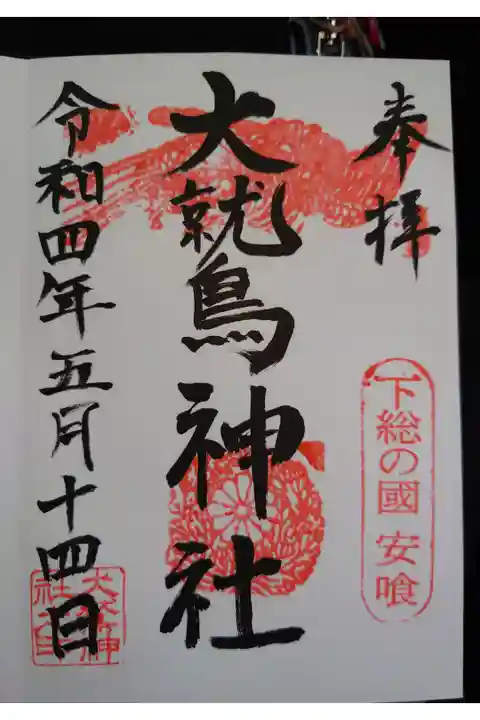 奉拝
下総の國 安喰
大鷲神社
令和四年五月十四日